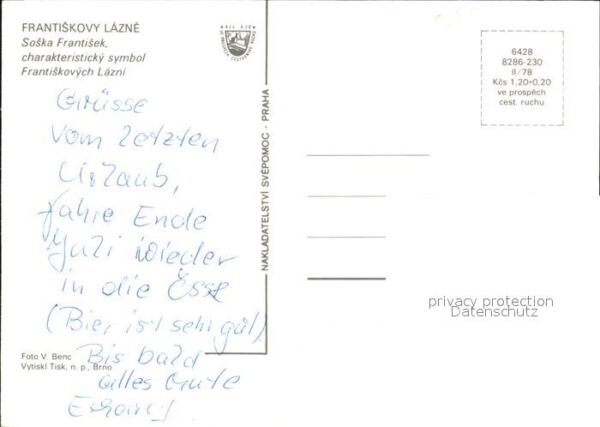 FRANTIŠKOVY LÁZNĚ
Soška František,
charakteristický symbol
Františkových Lázní
6428
8286-230
II/78
Kčs 1,20+0,20
ve prospěch
cest. ruchu
NAKLADATELSTVÍ SVÉPOMOC · PRAHA
Grüsse
vom letzten
Urlaub,
fahre Ende
Juli wieder
in die
(Bier ist sehr gut)
Bis bald
alles Gute
Foto V. Benc
Vytiskl Tisk, n. p., Brno
privacy protection
Datenschutz